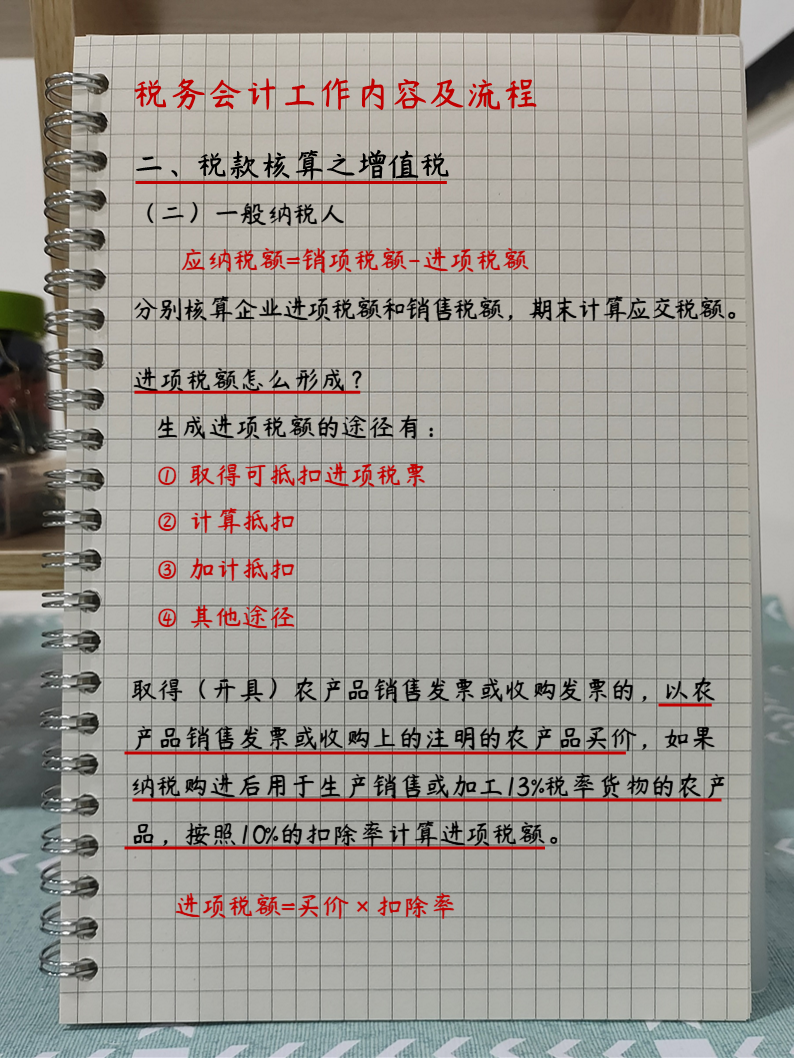 税务会计工作内容及流程
二、税款核算之增值税
（二）一般纳税人
应纳税额=销项税额-进项税额
分别核算企业进项税额和销售税额，期末计算应交税额。
进项税额怎么形成？
生成进项税额的途径有：
① 取得可抵扣进项税票
② 计算抵扣
③ 加计抵扣
④ 其他途径
取得（开具）农产品销售发票或收购发票的，以农
产品销售发票或收购上的注明的农产品买价，如果
纳税购进后用于生产销售或加工13%税率货物的农产
品，按照10%的扣除率计算进项税额。
进项税额=买价×扣除率